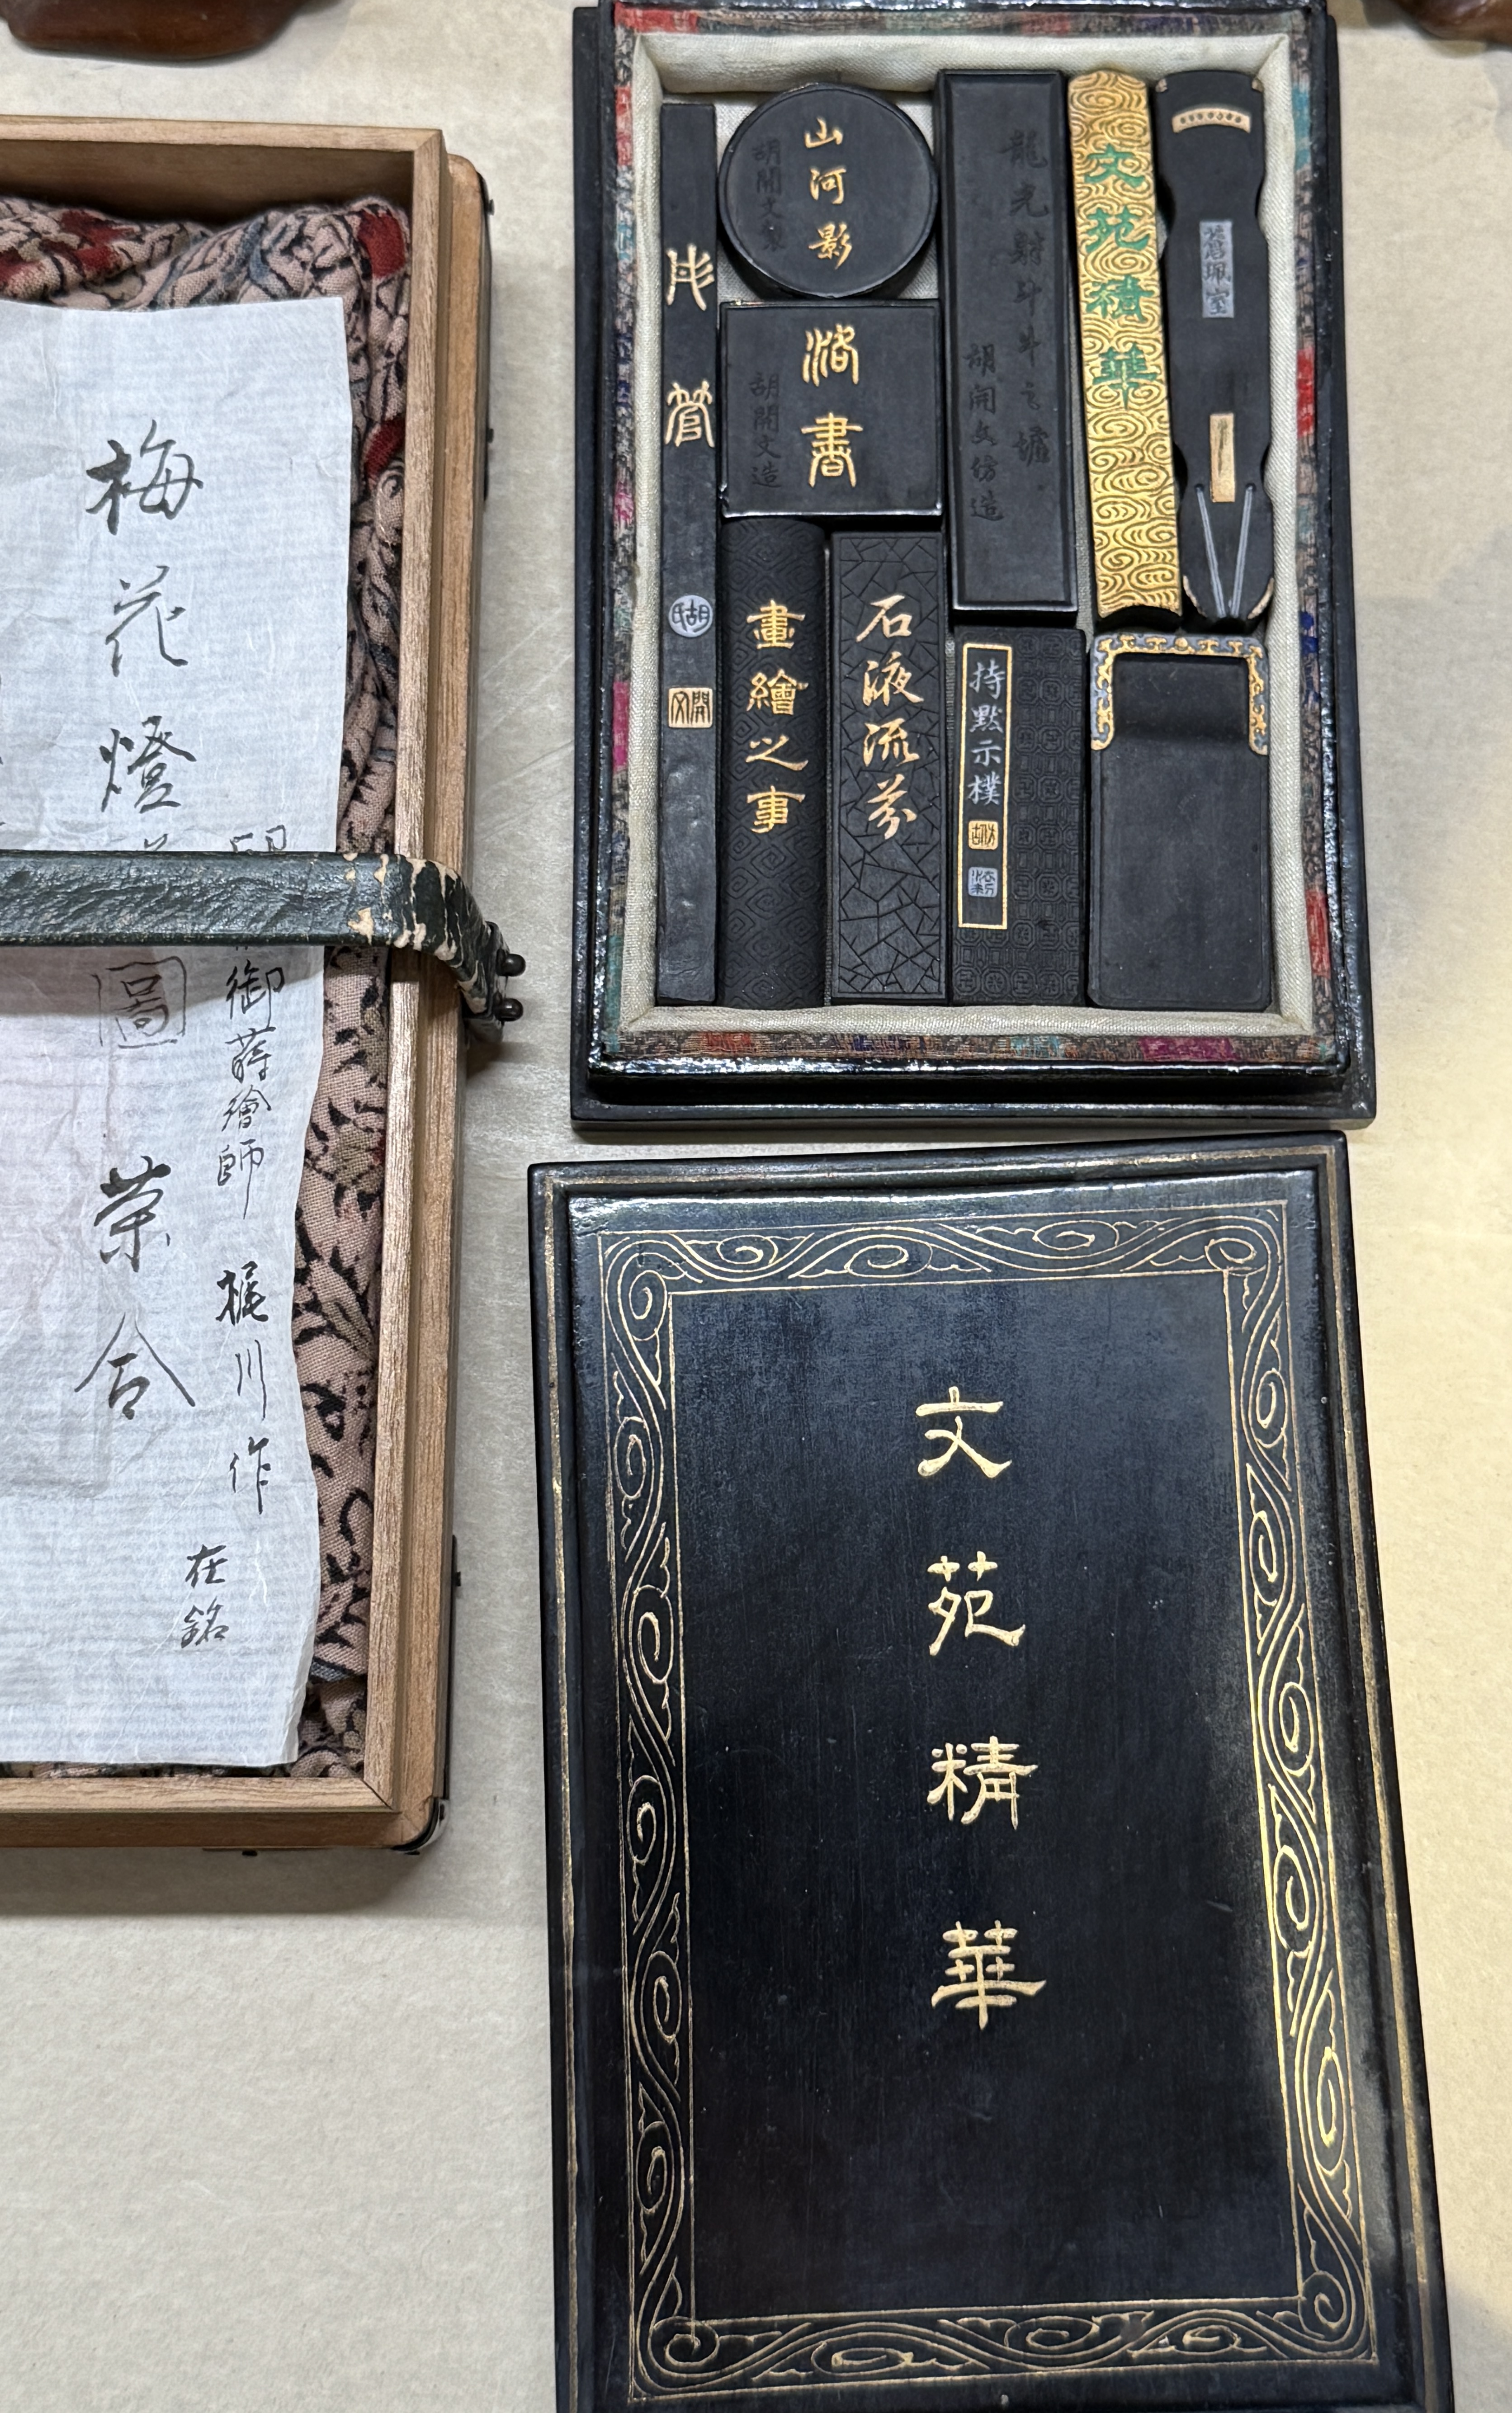 山河影
胡開文製
洛書
胡開文造
彤管
胡氏
開文
畫繪之事
石液流芬
龍光射斗牛之墟
胡開文仿造
持默示樸
文苑積華
文苑精華
梅花燈
圖
御蒔繪師 梶川作
在銘